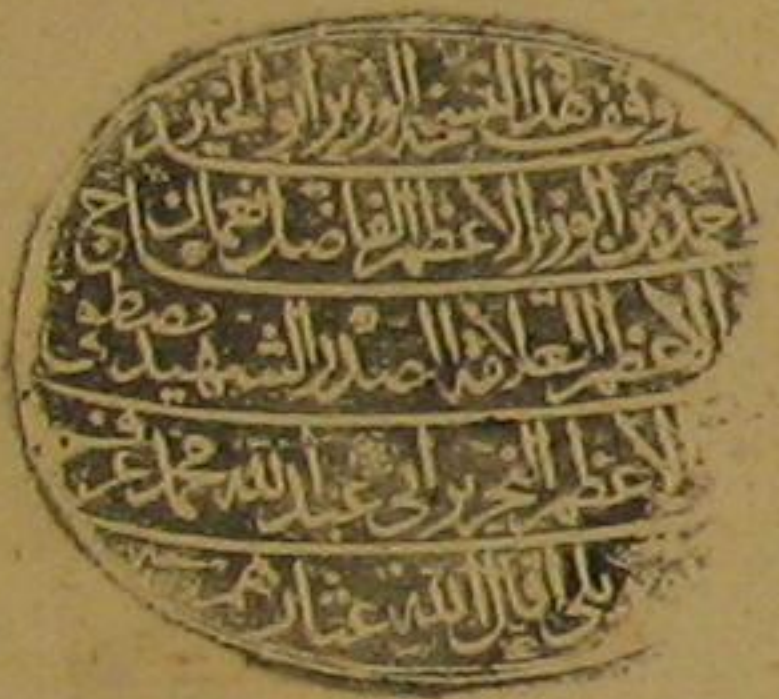 وقف هذا النسخة الوزير ابو الخير
احمد بن الوزير الاعظم الفاضل نعمان اخ
الاعظم العلامة الصدر الشهيد مصطفى
الاعظم النحرير ابى عبد الله محمد عرف
بلى اقال الله عثارهم